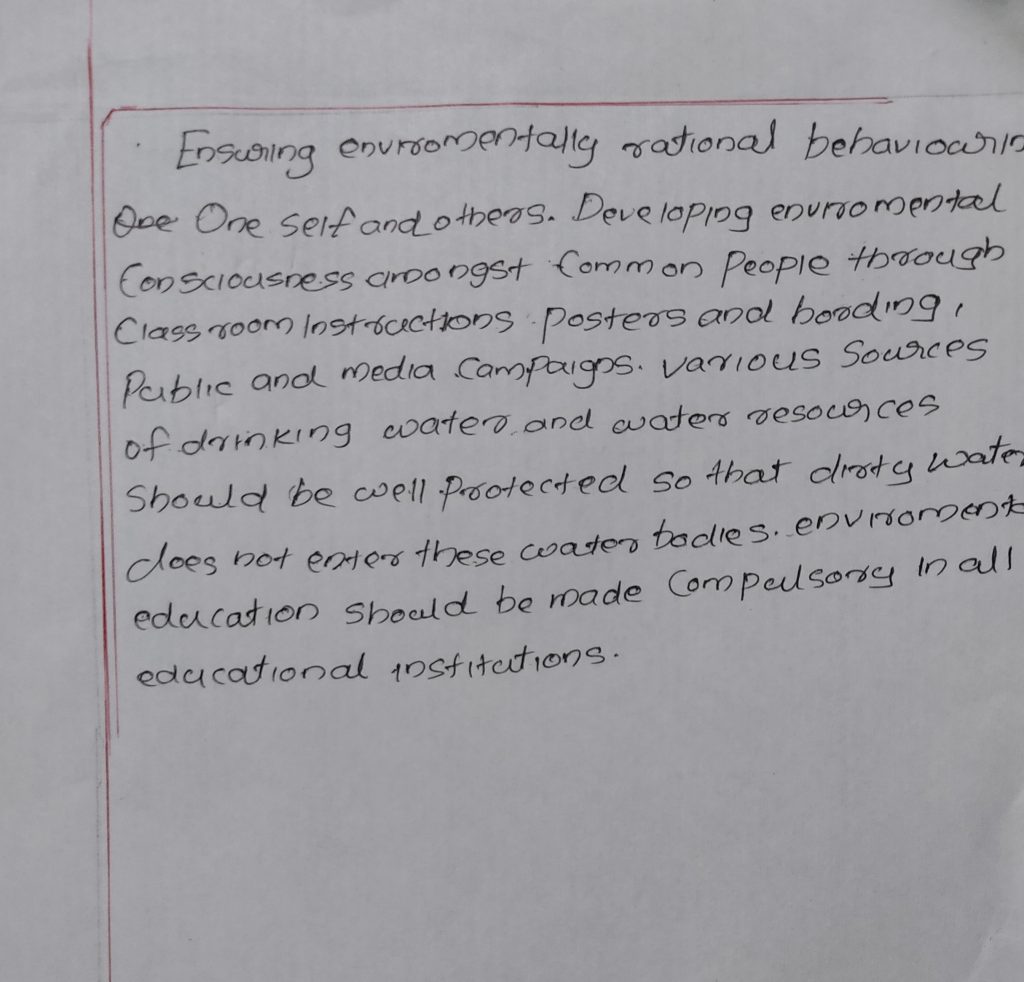 Ensuring enviromentally rational behaviour in
One One self and others. Developing enviromental
Consciousness amongst Common People through
Class room Instructions posters and boording,
Public and media Campaigns. various Sources
of drinking water and water resources
Should be well protected so that dirty water
does not enter these water bodies. enviroment
education should be made Compulsory in all
educational institutions.